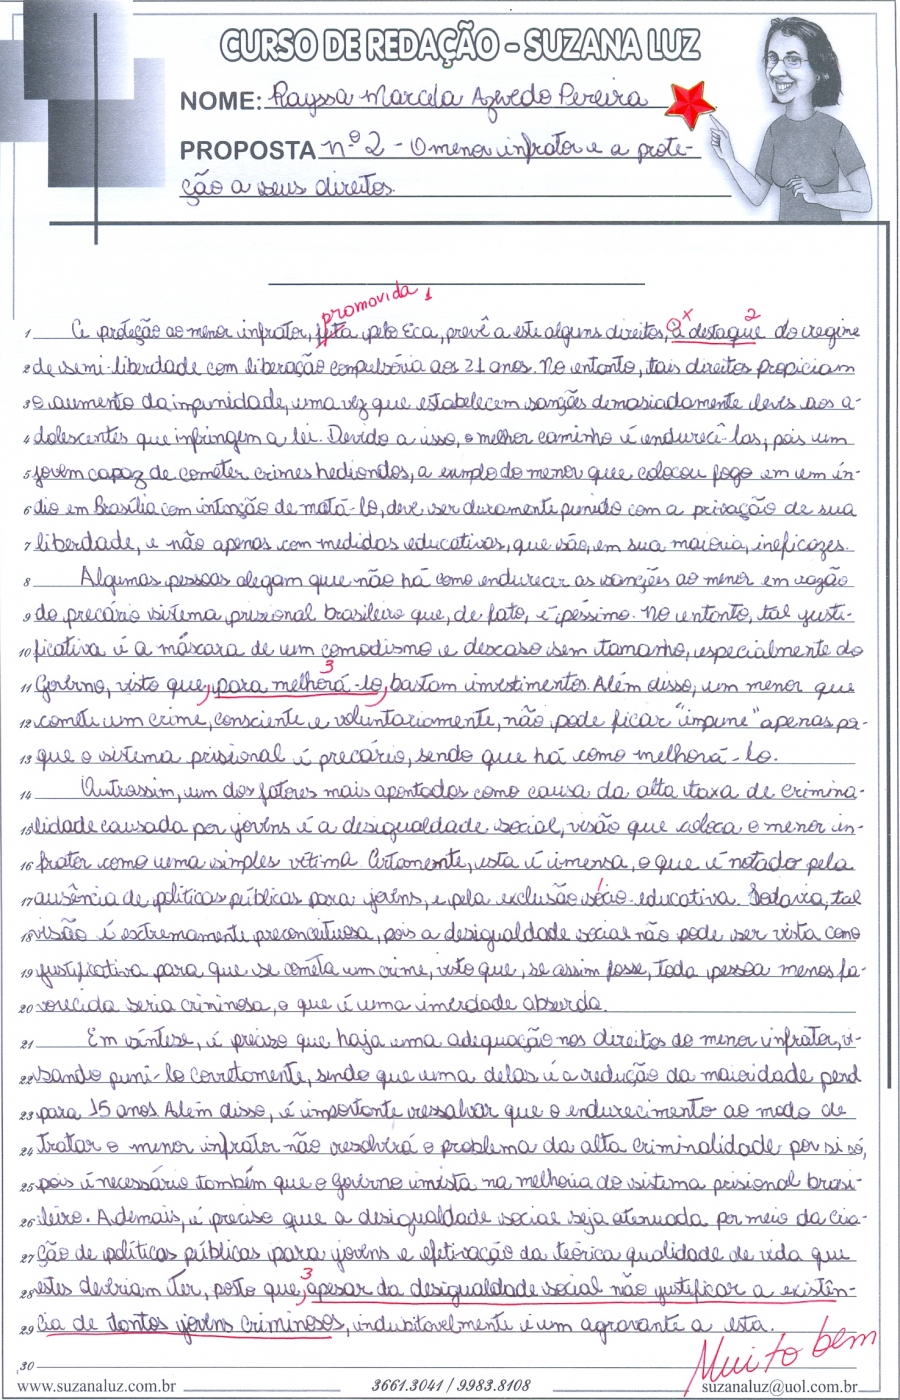 CURSO DE REDAÇÃO - SUZANA LUZ
NOME: Rayssa Marcela Azevedo Pereira
PROPOSTA nº 2 - O menor infrator e a prote-
ção a seus direitos
promovida 1
x 2
1 A proteção ao menor infrator, feita pelo Eca, prevê a este alguns direitos, a destaque do regime
2 de semi-liberdade com liberação compulsória aos 21 anos. No entanto, tais direitos propiciam
3 o aumento da impunidade, uma vez que estabelecem sanções demasiadamente leves aos a-
4 dolescentes que infringem a lei. Devido a isso, o melhor caminho é endurecê-las, pois um
5 jovem capaz de cometer crimes hediondos, a exemplo do menor que colocou fogo em um ín-
6 dio em Brasília com intenção de matá-lo, deve ser duramente punido com a privação de sua
7 liberdade, e não apenas com medidas educativas, que são, em sua maioria, ineficazes.
8 Algumas pessoas alegam que não há como endurecer as sanções ao menor em razão
9 do precário sistema prisional brasileiro que, de fato, é péssimo. No entanto, tal justi-
10 ficativa é a máscara de um comodismo e descaso sem tamanho, especialmente do
3
11 Governo, visto que, para melhorá-lo, bastam investimentos. Além disso, um menor que
12 comete um crime, consciente e voluntariamente, não pode ficar "impune" apenas por-
13 que o sistema prisional é precário, sendo que há como melhorá-lo.
14 Outrossim, um dos fatores mais apontados como causa da alta taxa de crimina-
15 lidade causada por jovens é a desigualdade social, visão que coloca o menor in-
16 frator como uma simples vítima. Certamente, esta é imensa, o que é notado pela
17 ausência de políticas públicas para jovens, e pela exclusão sócio-educativa. Todavia, tal
18 visão é extremamente preconceituosa, pois a desigualdade social não pode ser vista como
19 justificativa para que se cometa um crime, visto que, se assim fosse, toda pessoa menos fa-
20 vorecida seria criminosa, o que é uma inverdade absurda.
21 Em síntese, é preciso que haja uma adequação nos direitos do menor infrator, vi-
22 sando puni-lo corretamente, sendo que uma delas é a redução da maioridade penal
23 para 15 anos. Além disso, é importante ressalvar que o endurecimento ao modo de
24 tratar o menor infrator não resolverá o problema da alta criminalidade por si só,
25 pois é necessário também que o governo invista na melhoria do sistema prisional brasi-
26 leiro. Ademais, é preciso que a desigualdade social seja atenuada por meio da cria-
27 ção de políticas públicas para jovens e efetivação da teórica qualidade de vida que
3
28 estes deveriam ter, posto que, apesar da desigualdade social não justificar a existên-
29 cia de tantos jovens criminosos, indubitavelmente é um agravante a esta.
30
Muito bem
www.suzanaluz.com.br 3661.3041 / 9983.8108 suzanaluz@uol.com.br